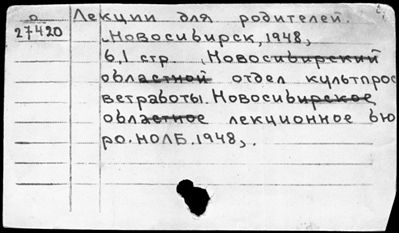 о
27420
Лекции для родителей.
Новосибирск, 1948,
6,1 стр. Новосибирский
областной отдел культпрос
ветработы. Новосибирское
областное лекционное бю
ро. НОЛБ. 1948,.